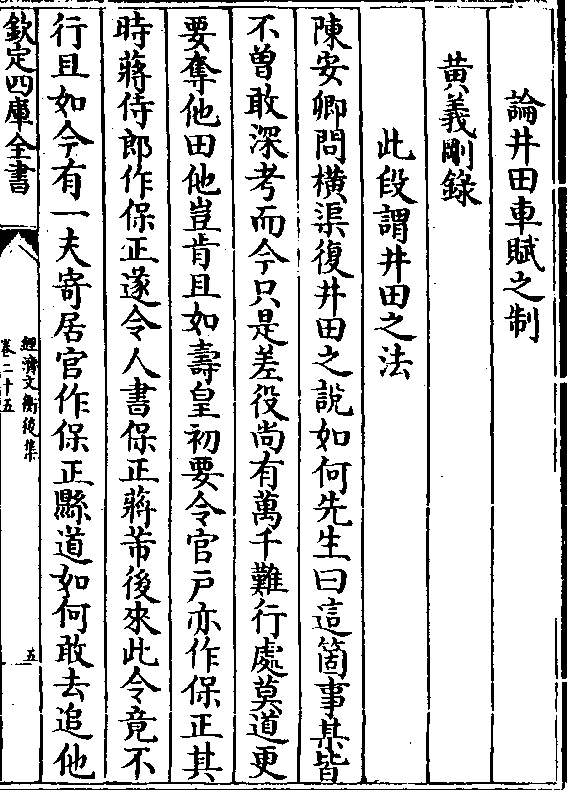 論井田車賦之制
黄義剛錄
此段謂井田之法
陳安卿問橫渠復井田之說如何先生曰這箇事某皆
不曾敢深考而今只是差役尚有萬千難行處莫道更
要奪他田他豈肯且如壽皇初要令官戶亦作保正其
時蔣侍郎作保正遂令人書保正蔣芾後來此令竟不
行且如今有一夫寄居官作保正縣道如何敢去追他
欽定四庫全書
經濟文衡後集
卷二十五
五